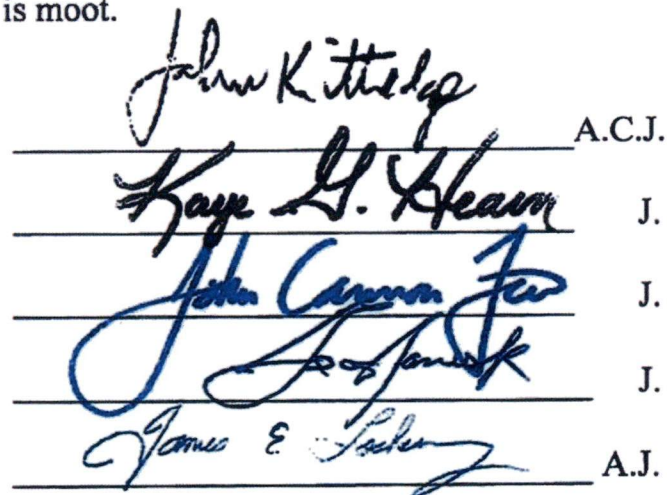 is moot.
John Kittredge A.C.J.
Kaye G. Hearn J.
John Cannon Few J.
J.
James E A.J.